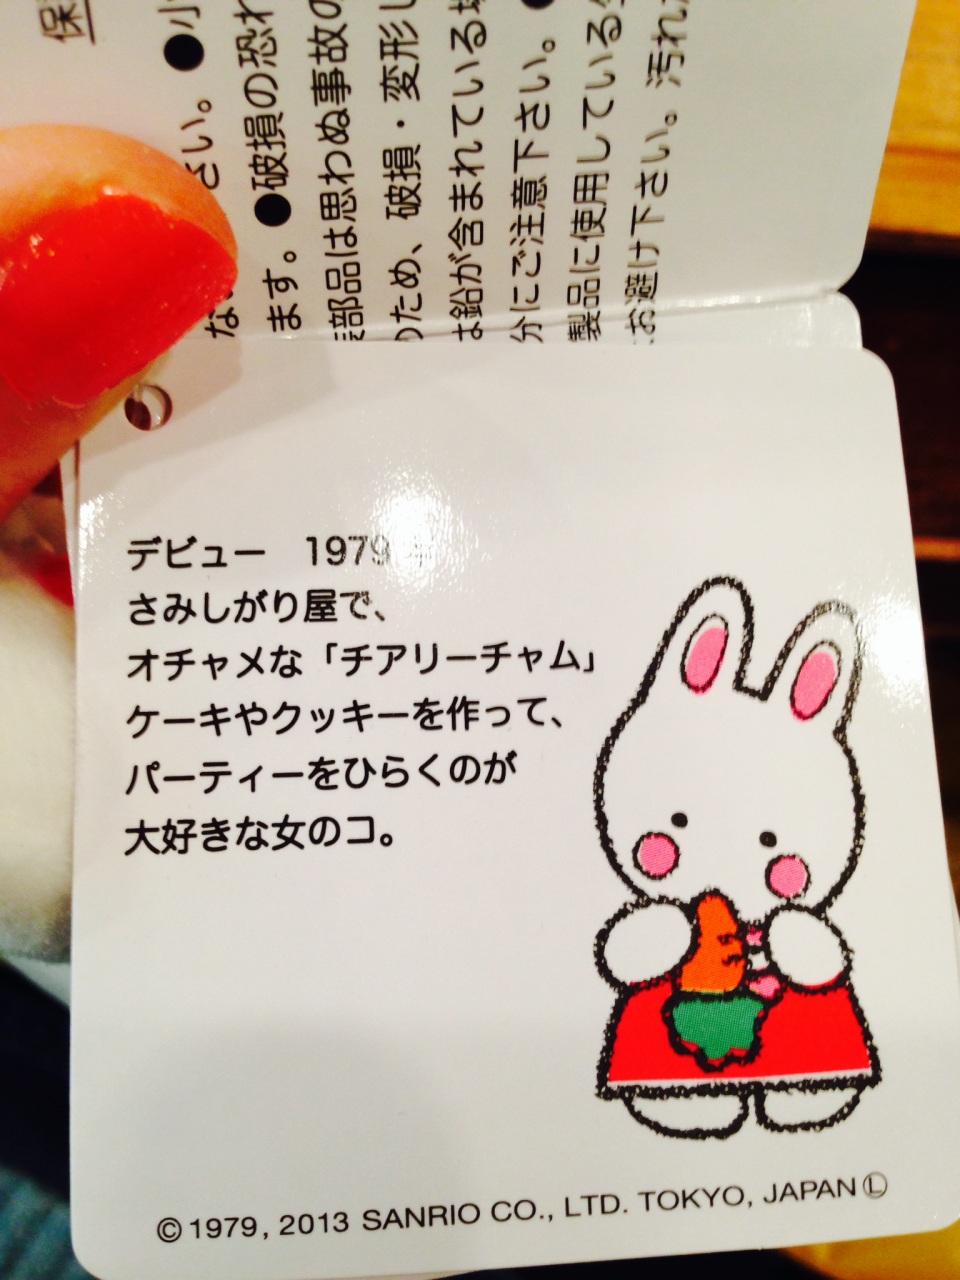 デビュー 1979年
さみしがり屋で、
オチャメな「チアリーチャム」
ケーキやクッキーを作って、
パーティーをひらくのが
大好きな女のコ。
© 1979, 2013 SANRIO CO., LTD. TOKYO, JAPAN Ⓛ
保
●小
さい。
●破損の恐れ
ます。
部品は思わぬ事故の
ため、破損・変形し
鉛が含まれている場
分にご注意下さい。●
製品に使用している
お避け下さい。汚れ